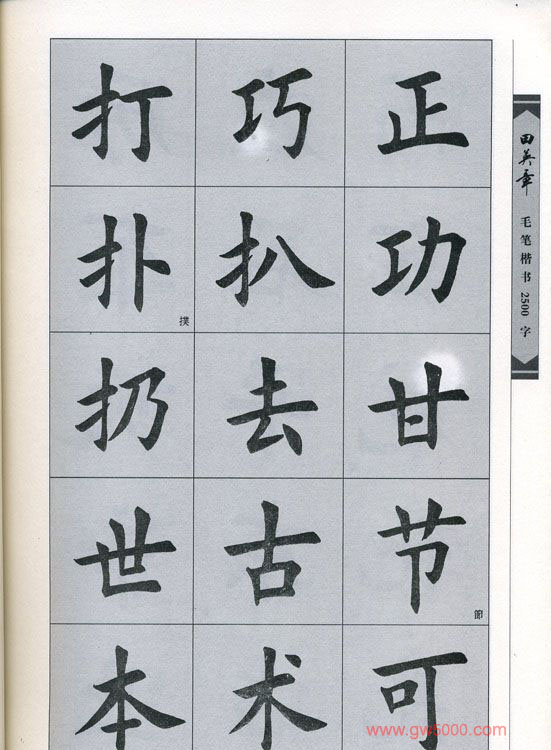 打 巧 正
扑 撲 扒 功
扔 去 甘
世 古 节 節
本 术 可
田英章 毛笔楷书 2500 字
www.gw5000.com